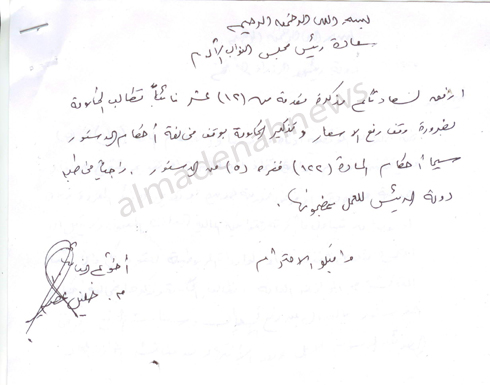 بسم الله الرحمن الرحيم
سعادة رئيس مجلس النواب الأكرم
ارفق لسعادتكم مذكرة مقدمة من (١٢) عشر نائباً تطالب الحكومة
بضرورة وقف رفع الاسعار و تذكير الحكومة بوقف مخالفة أحكام الدستور
سيما أحكام المادة (١٢٢) فقرة (٥) من الدستور. راجياً مخاطبة
دولة الرئيس للعمل بمضمونها.
واقبلوا الاحترام
أخوكم النائب
م. خليل
almadenahnews